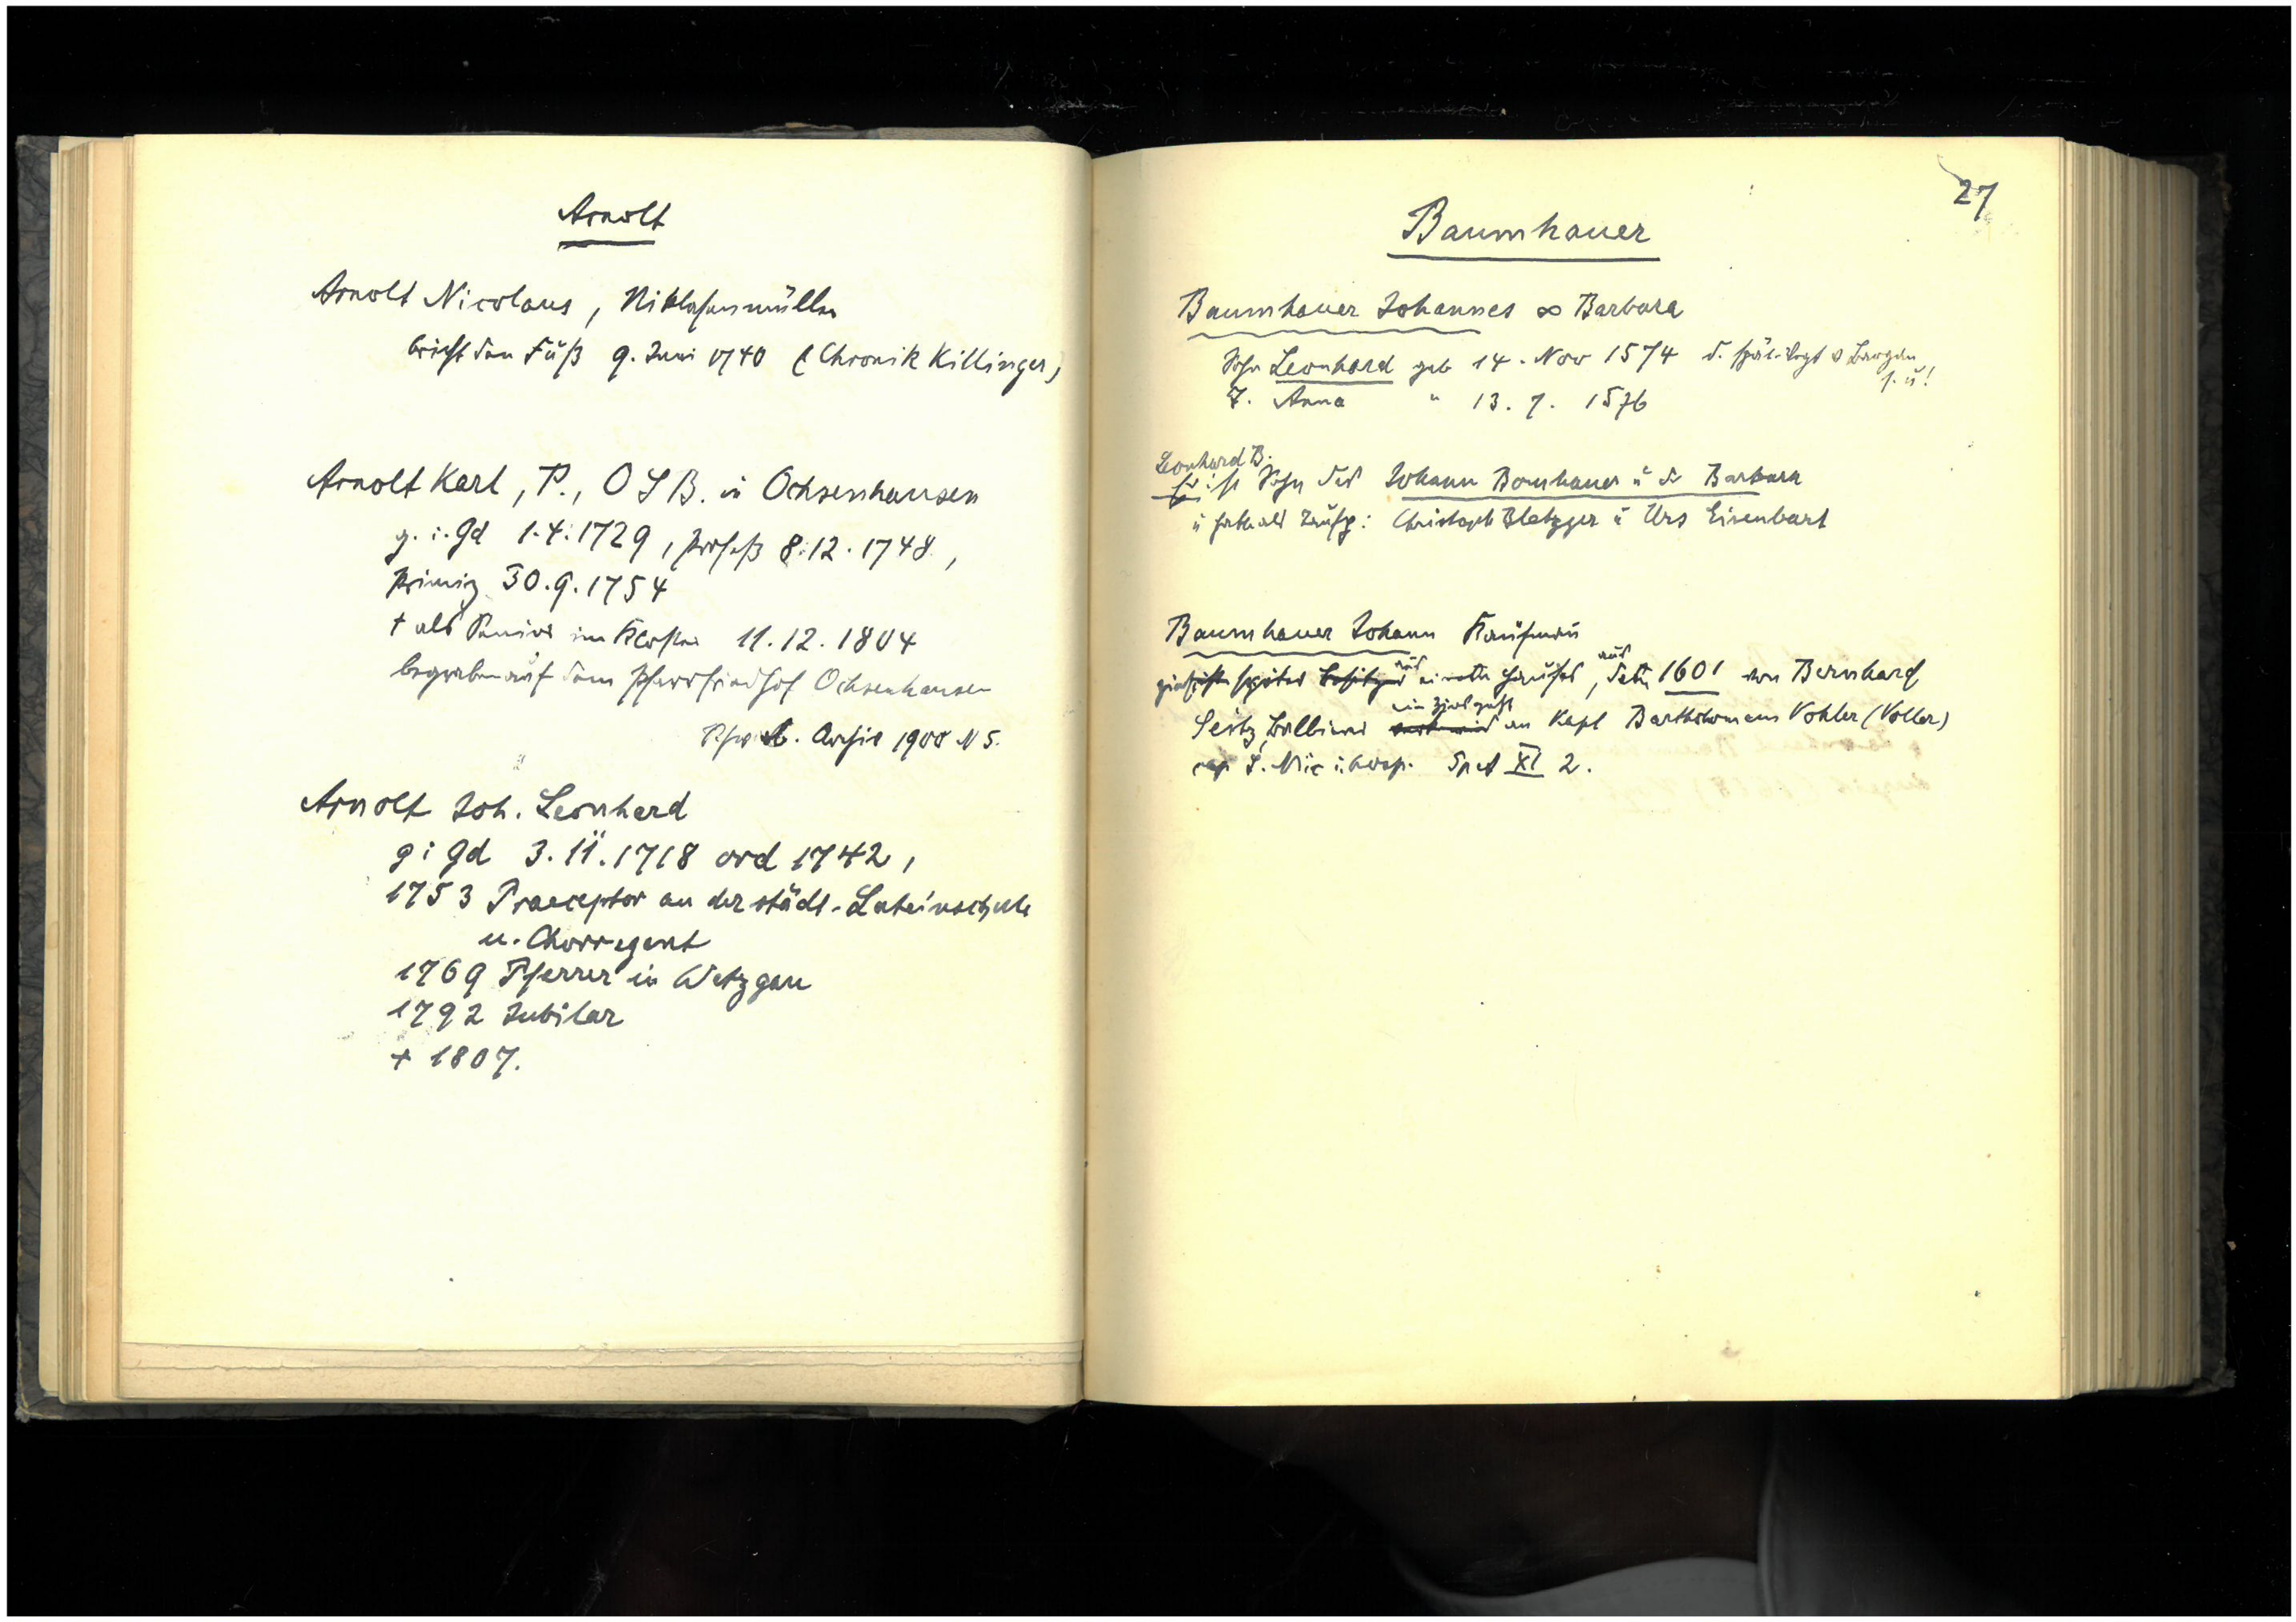 Arnolt
Arnolt Nicolaus, Niklasenmüller
bricht den Fuß 9. Juni 1740 (Chronik Killinger)
Arnolt Karl, P., O S B. in Ochsenhausen
g. i. Gd 1.4.1729, Profeß 8.12.1748,
Primiz 30.9.1754
† als Senior im Kloster 11.12.1804
begraben auf dem Pfarrfriedhof Ochsenhausen
Archiv 1900 N 5.
Arnolt Joh. Leonhard
g i Gd 3.11.1718 ord 1742,
1753 Praeceptor an der städt. Lateinschule
u. Chorregent
1769 Pfarrer in Wetzgau
1792 Jubilar
+ 1807.
27
Baumhauer
Baumhauer Johannes ∞ Barbara
Sohn Leonhard geb 14. Nov 1574 d. spät. Vogt v Bargau
s. u!
T. Anna " 13. 7. 1576
Leonhard B.
Er ist Sohn des Johann Bomhauer u d Barbara
u hatte als Taufp: Christoph Bletzger u Urs Eisenbart
Baumhauer Johann Kaufmann
später Besitzer eines Hauses, aus dem 1601 von Bernhard
ein Zins geht
Seitz, Balbierer an Kapl Bartholomaeus Vohler (Voller)
cap S. Nic i. hosp. Spet XI 2.